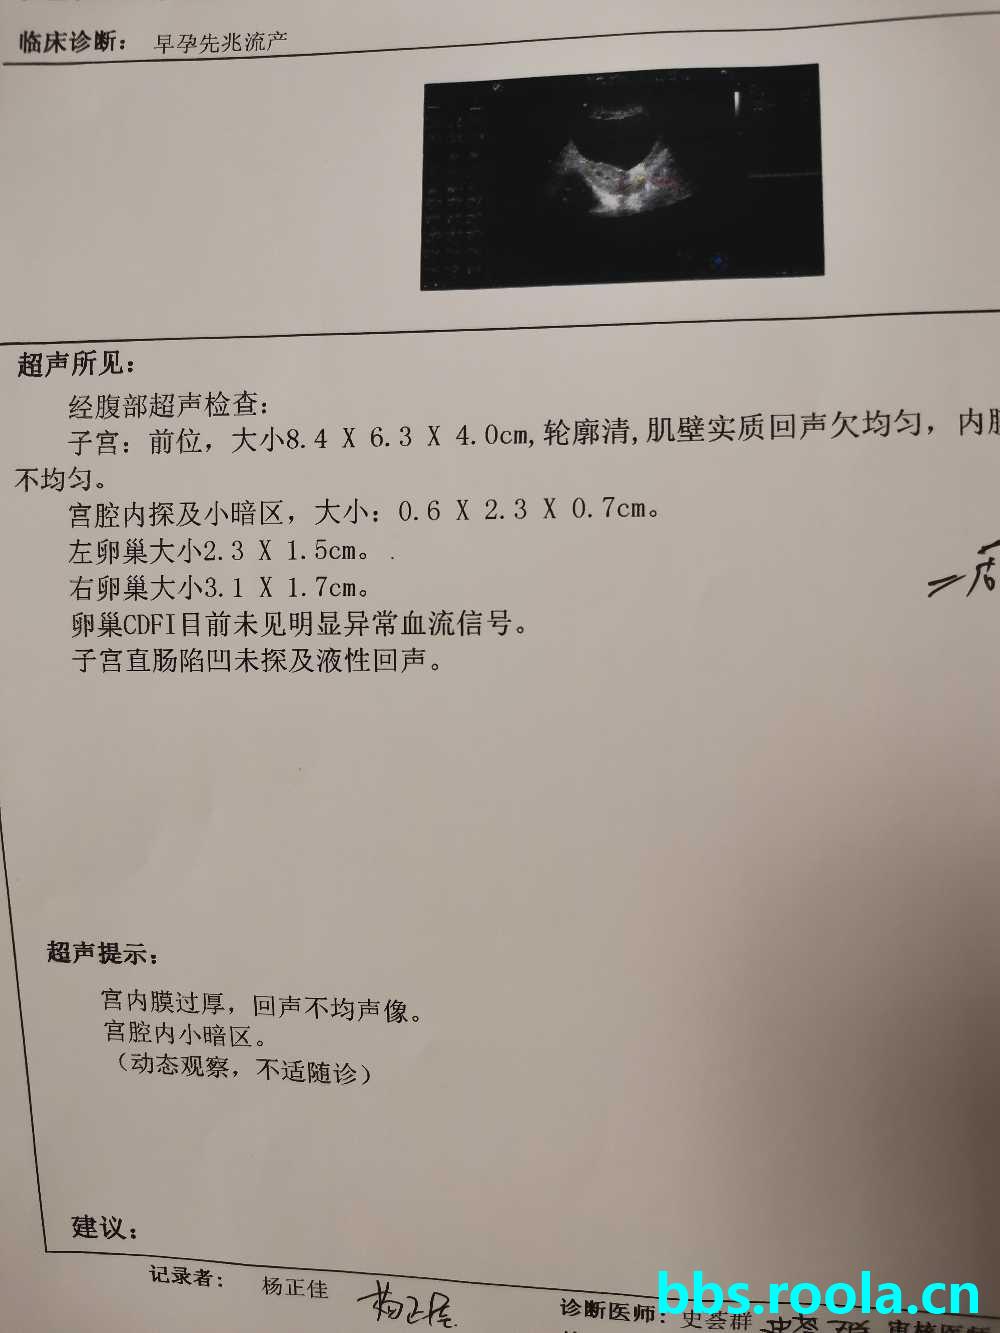 临床诊断： 早孕先兆流产
超声所见：
经腹部超声检查：
子宫：前位，大小8.4 X 6.3 X 4.0cm,轮廓清,肌壁实质回声欠均匀，内膜
不均匀。
宫腔内探及小暗区，大小：0.6 X 2.3 X 0.7cm。
左卵巢大小2.3 X 1.5cm。
右卵巢大小3.1 X 1.7cm。
卵巢CDFI目前未见明显异常血流信号。
子宫直肠陷凹未探及液性回声。
超声提示：
宫内膜过厚，回声不均声像。
宫腔内小暗区。
（动态观察，不适随诊）
建议：
记录者： 杨正佳
诊断医师：史荟群
bbs.roola.cn